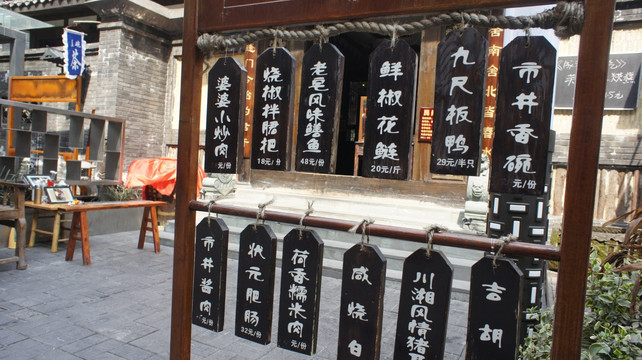 婆婆小炒肉
元/份
烧椒拌腰把
18元/份
老皂风味鳝鱼
48元/份
鲜椒花鲢
20元/斤
九尺板鸭
29元/半只
市井香碗
元/份
市井酱肉
元/份
状元肥肠
32元/份
荷香糯米肉
元/份
咸烧白
川湘风情猪
吉胡
茶